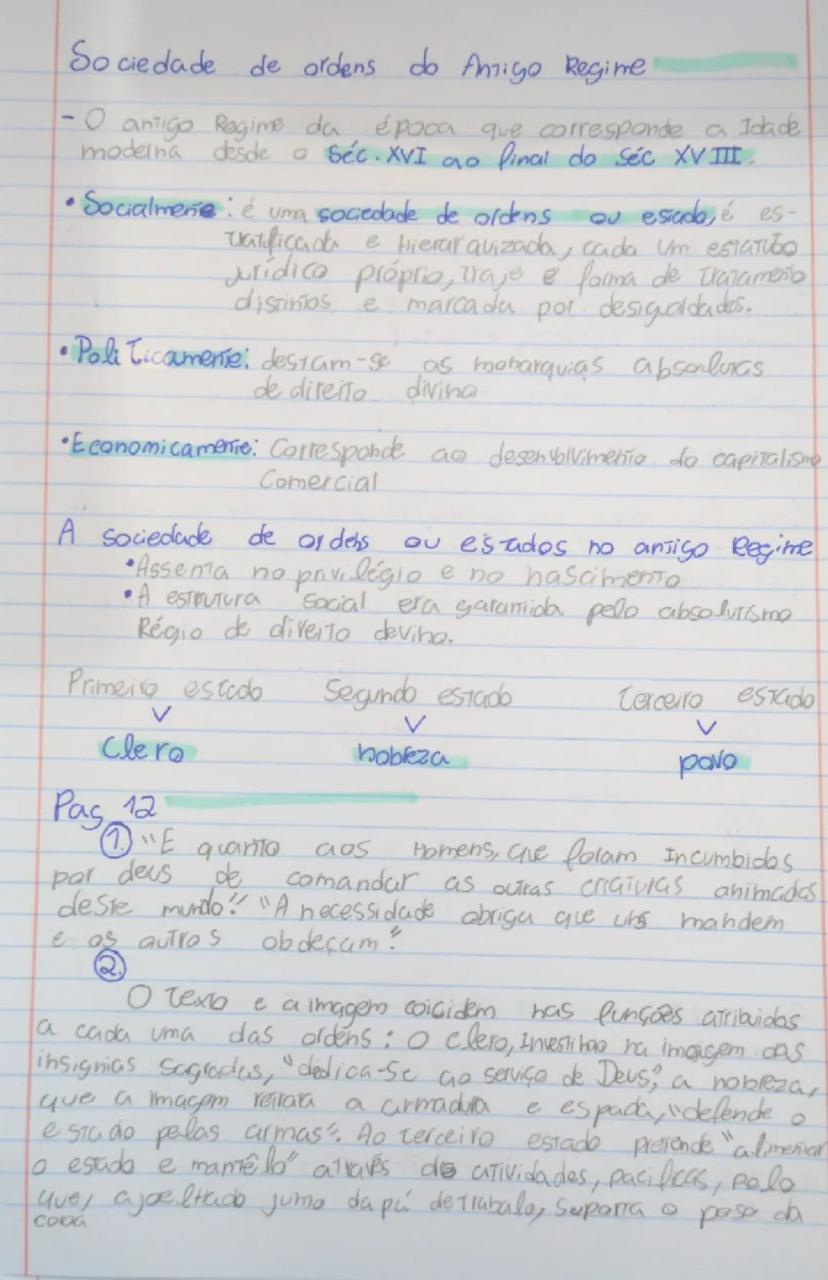 Sociedade de ordens do Antigo Regime
- O antigo Regime da época que corresponde a Idade
moderna desde o Séc. XVI ao final do Séc XVIII.
• Socialmente: é uma sociedade de ordens ou estado, é es-
tratificada e hierarquizada, cada um estatuto
jurídico próprio, traje e forma de tratamento
distintos e marcada por desigaldades.
• Politicamente: destam-se as monarquias absolutas
de direito divino
• Economicamente: Corresponde ao desenvolvimento do capitalismo
Comercial
A sociedade de ordens ou estados no antigo Regime
• Assenta no privilégio e no nascimento
• A estrutura social era garantida pelo absolutismo
Régio de direito devino.
Primeiro estado Segundo estado Terceiro estado
Clero nobreza povo
Pag 12
1. "E quanto aos Homens, que foram Incumbidos
por deus de comandar as outras criaturas animadas
deste mundo." "A necessidade obriga que uns mandem
e os outros obdeçam."
2.
O texto e a imagem coicidem nas funções atribuidas
a cada uma das ordens: O clero, na imaigem das
insignias Sagradas, "dedica-se ao serviço de Deus", a nobreza,
que a imagem retrata a armadura e espada, "defende o
estado pelas armas". Ao terceiro estado pretende "alimentar
o estado e mantêlo" através de atividades, pacificas, pelo
que, ajoelhado junto da pá de trabalo, suporta o peso da